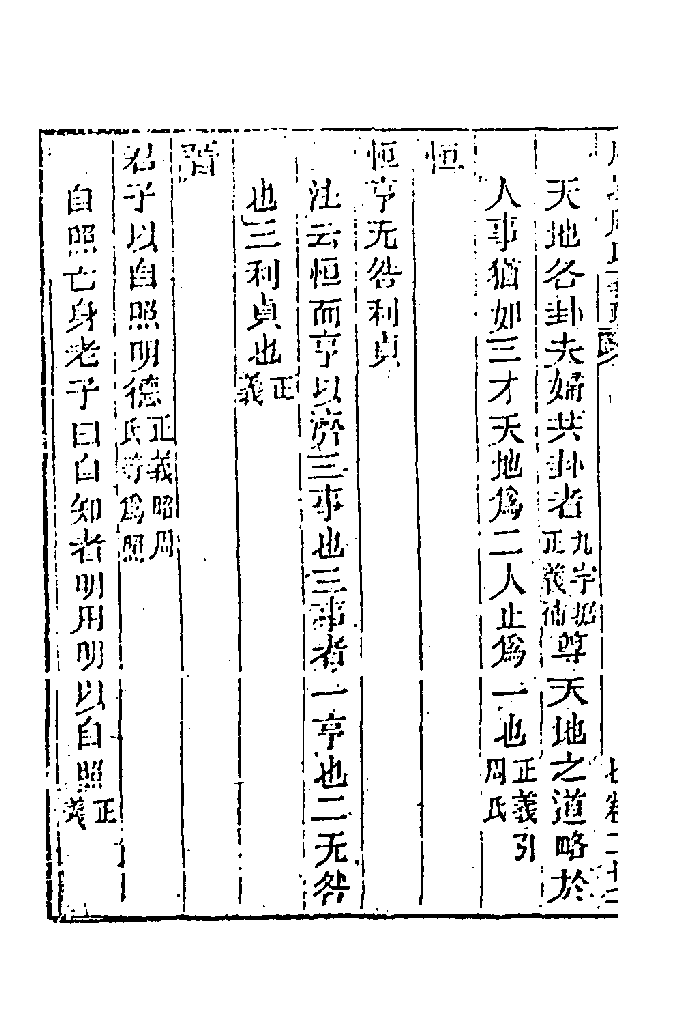 天地各卦夫婦共卦者九字據正義補尊天地之道略於
人事猶如三才天地爲二人止爲一也正義引周氏
恒
恒亨无咎利貞
注云恒而亨以濟三事也三事者一亨也二无咎
也三利貞也正義
晉
君子以自照明德正義昭周氏等爲照
自照亡身老子曰自知者明用明以自照正義